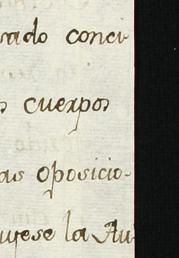 rado concu
s cuerpos
as oposicio-
uyese la Au